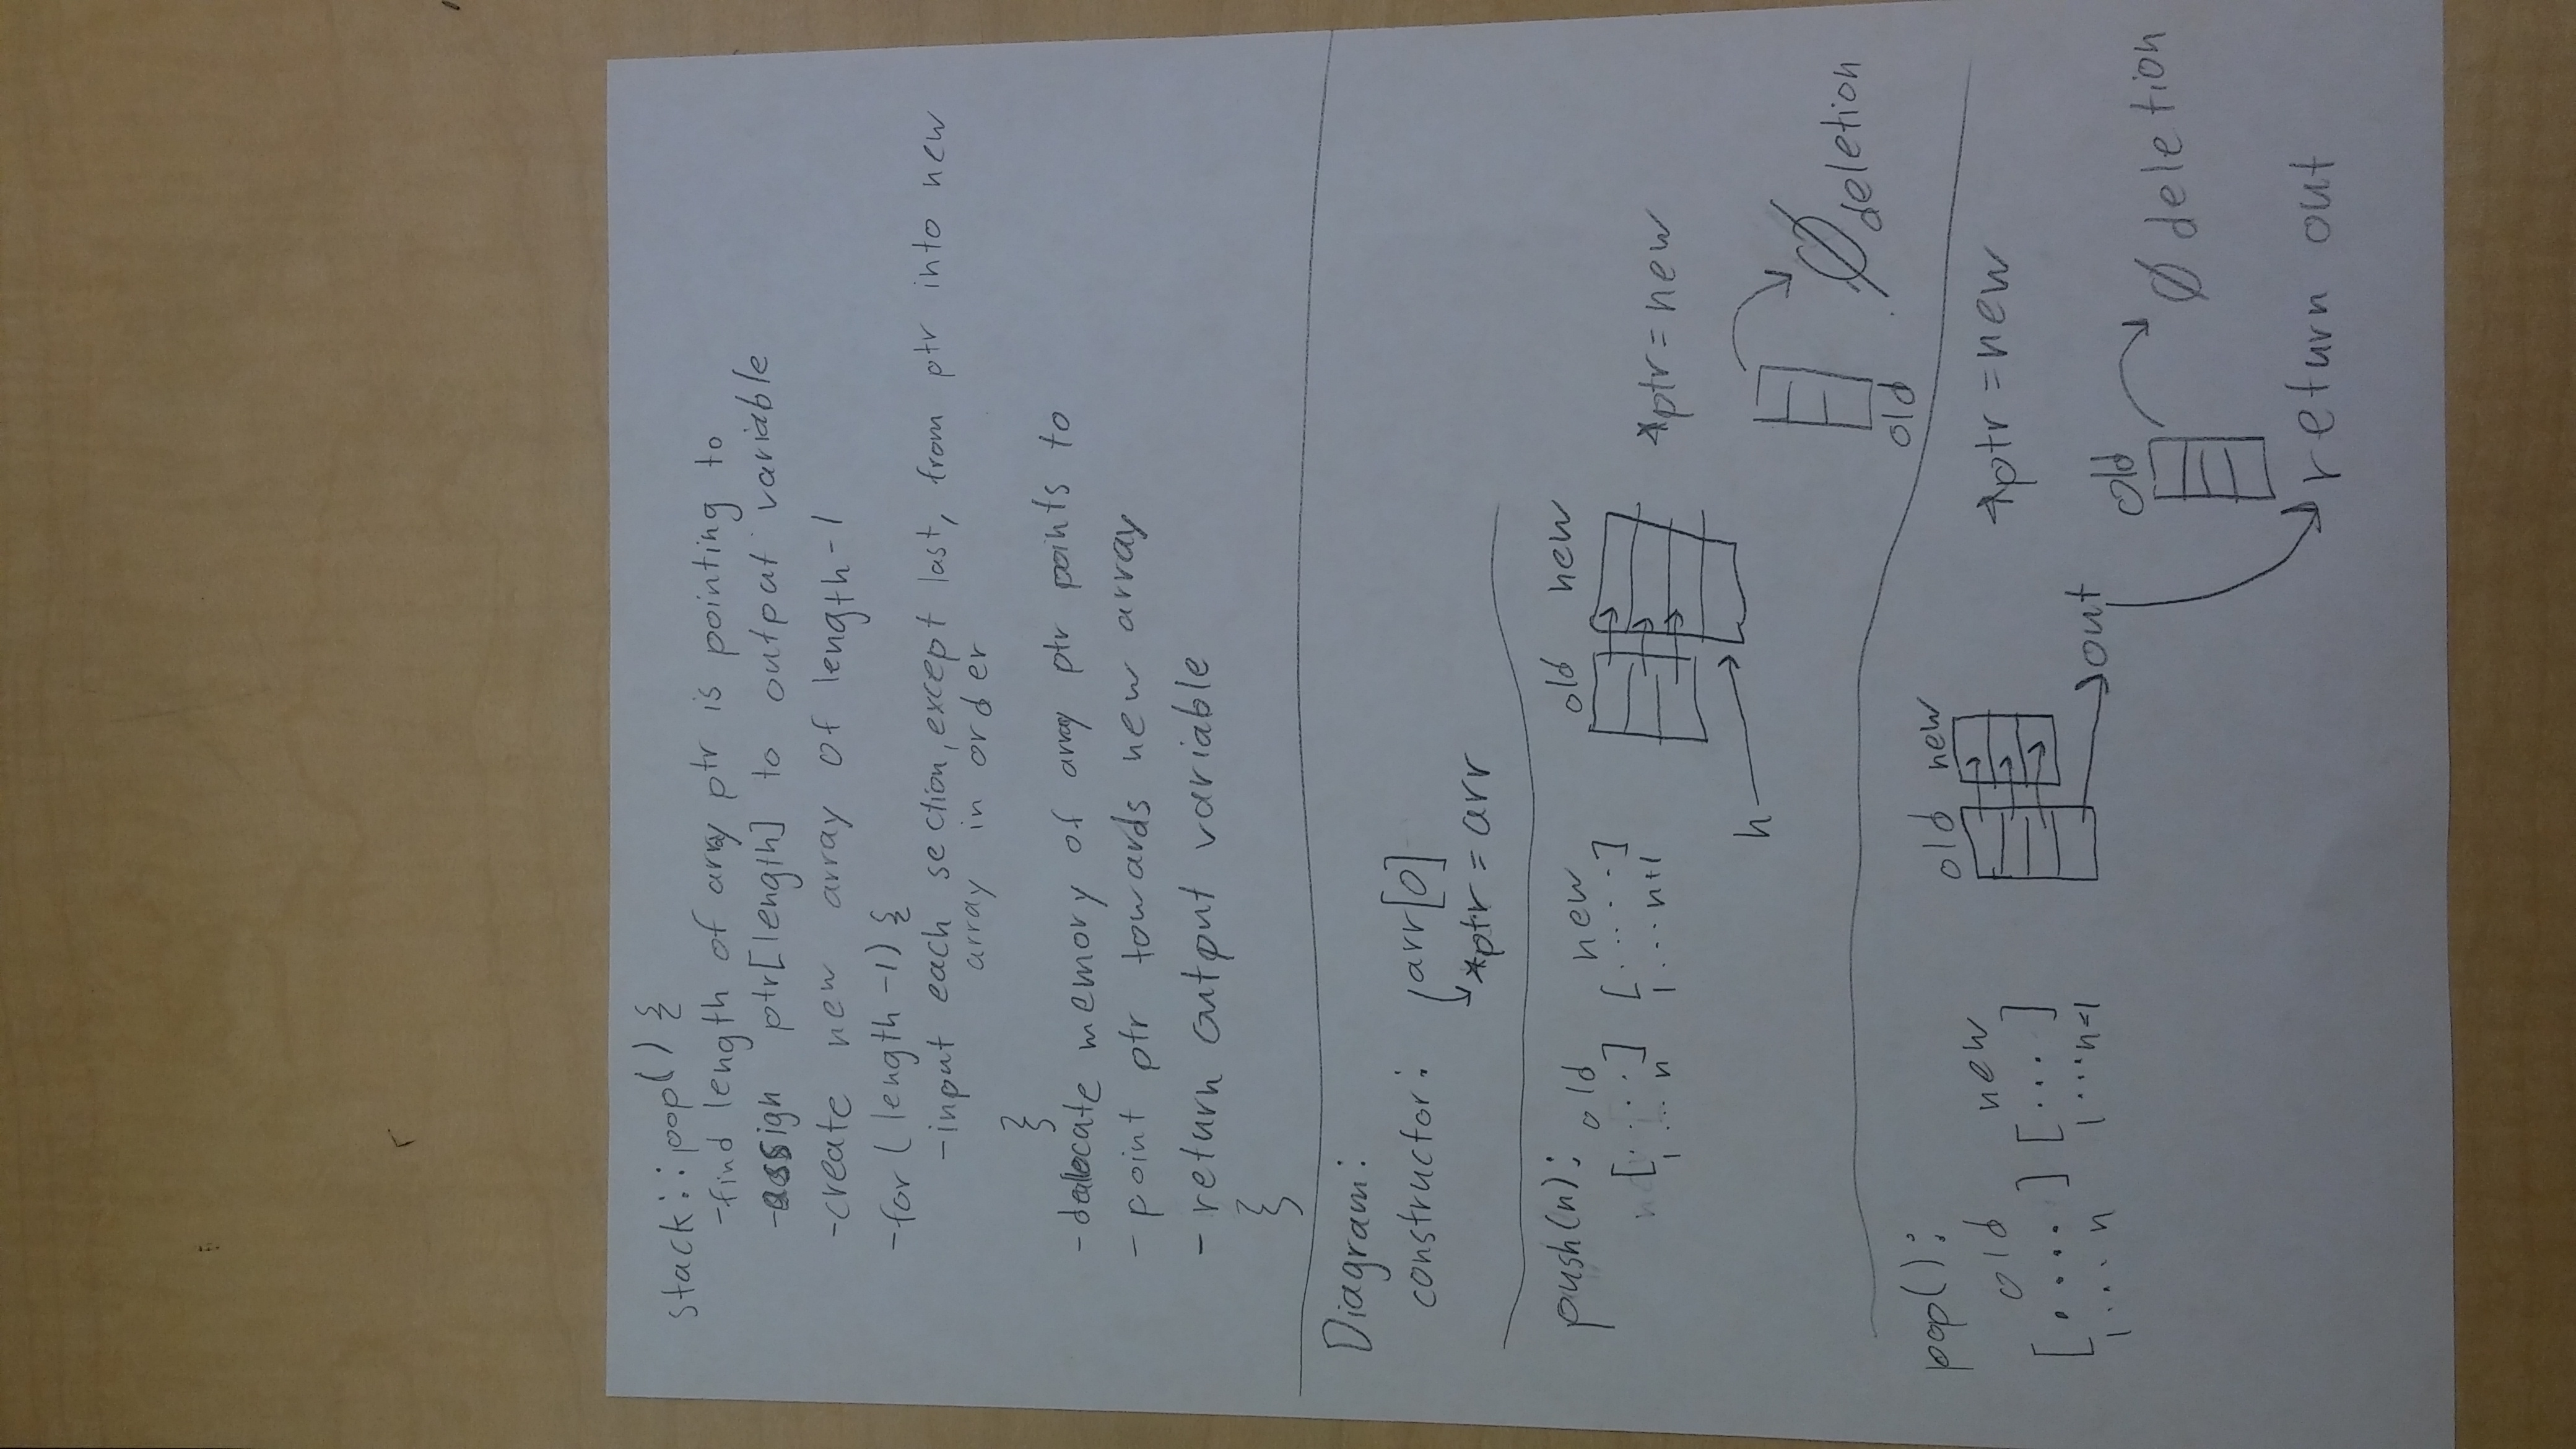 stack::pop() {
-find length of array ptr is pointing to
-assign ptr[length] to output variable
-create new array of length-1
-for (length-1) {
-input each section, except last, from ptr into new
array in order
}
-deallocate memory of array ptr points to
- point ptr towards new array
- return output variable
}
Diagram:
constructor: arr[0]
*ptr = arr
push(n):
old new
[....] [.....]
1 ... n 1 ... n+1
old new
n
*ptr = new
old
Ø deletion
pop():
old new
[....] [...]
1 ... n 1 ... n-1
old new
out
*ptr = new
old
Ø deletion
return out